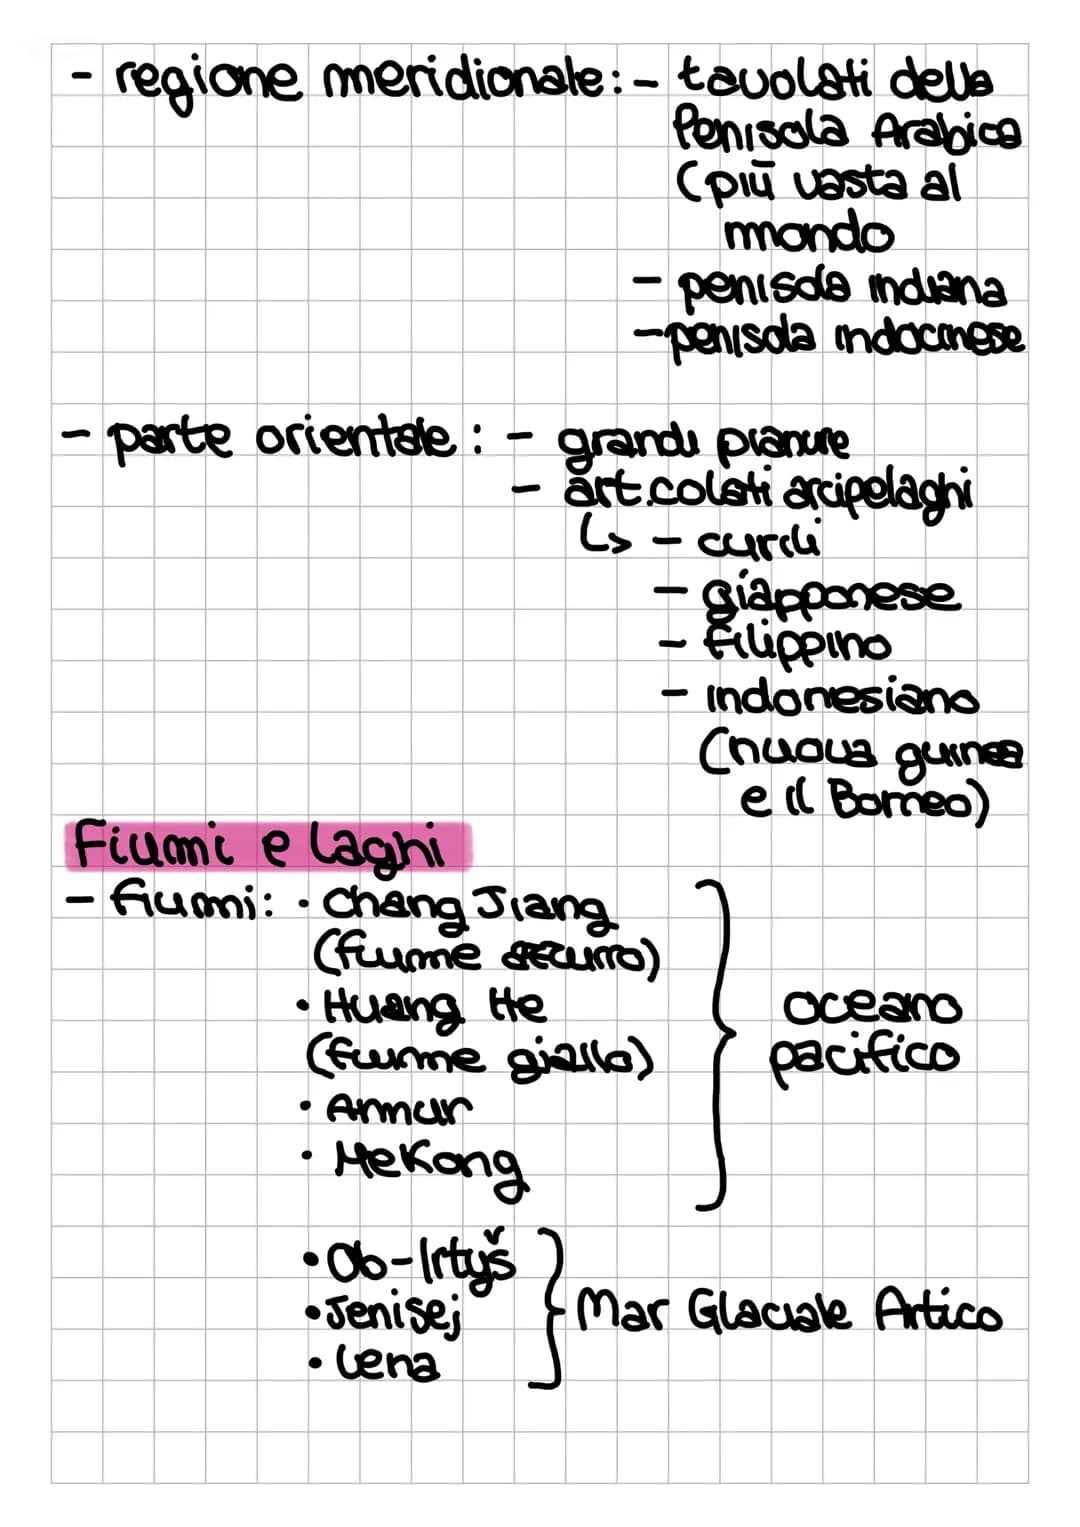 - regione meridionale: - tavolati della
Penisola Arabica
(più vasta al
mondo
- penisola indiana
- penisola indocinese
- parte orientale : - grandi pianure
- articolati arcipelaghi
↳ - curili
- giapponese
- filippino
- indonesiano
(nuova guinea
e il Borneo)
Fiumi e laghi
- fiumi: · Chang Jiang
(fiume azzurro)
· Huang He
(fiume giallo)
oceano
pacifico
· Amur
· Mekong
· Ob-Irtyš
· Jenisej
· Lena
Mar Glaciale Artico